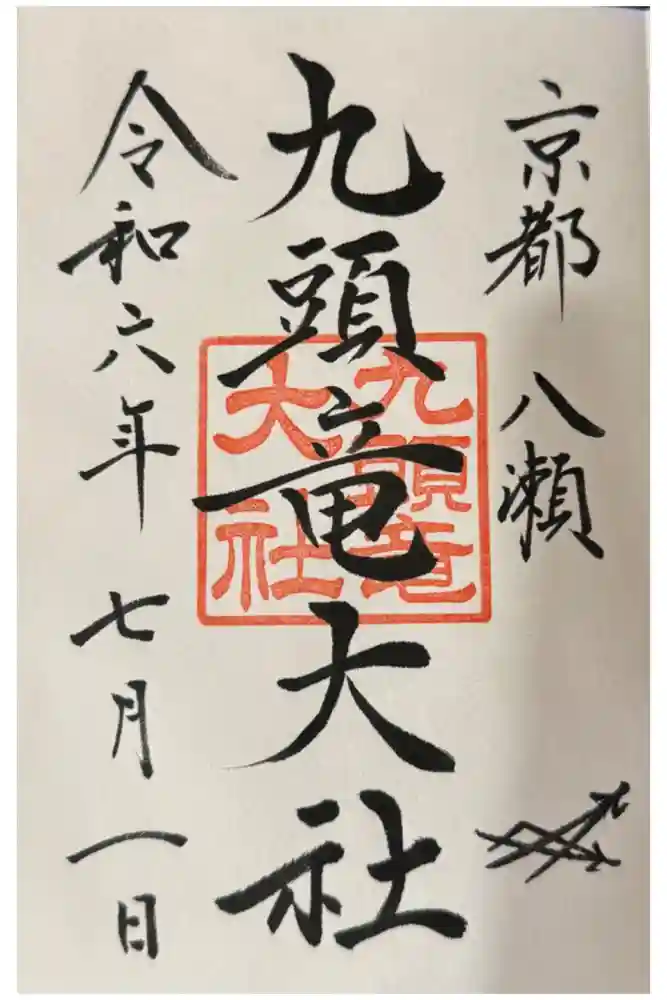 京都 八瀬
九頭竜大社
九頭竜
大社
令和六年七月一日